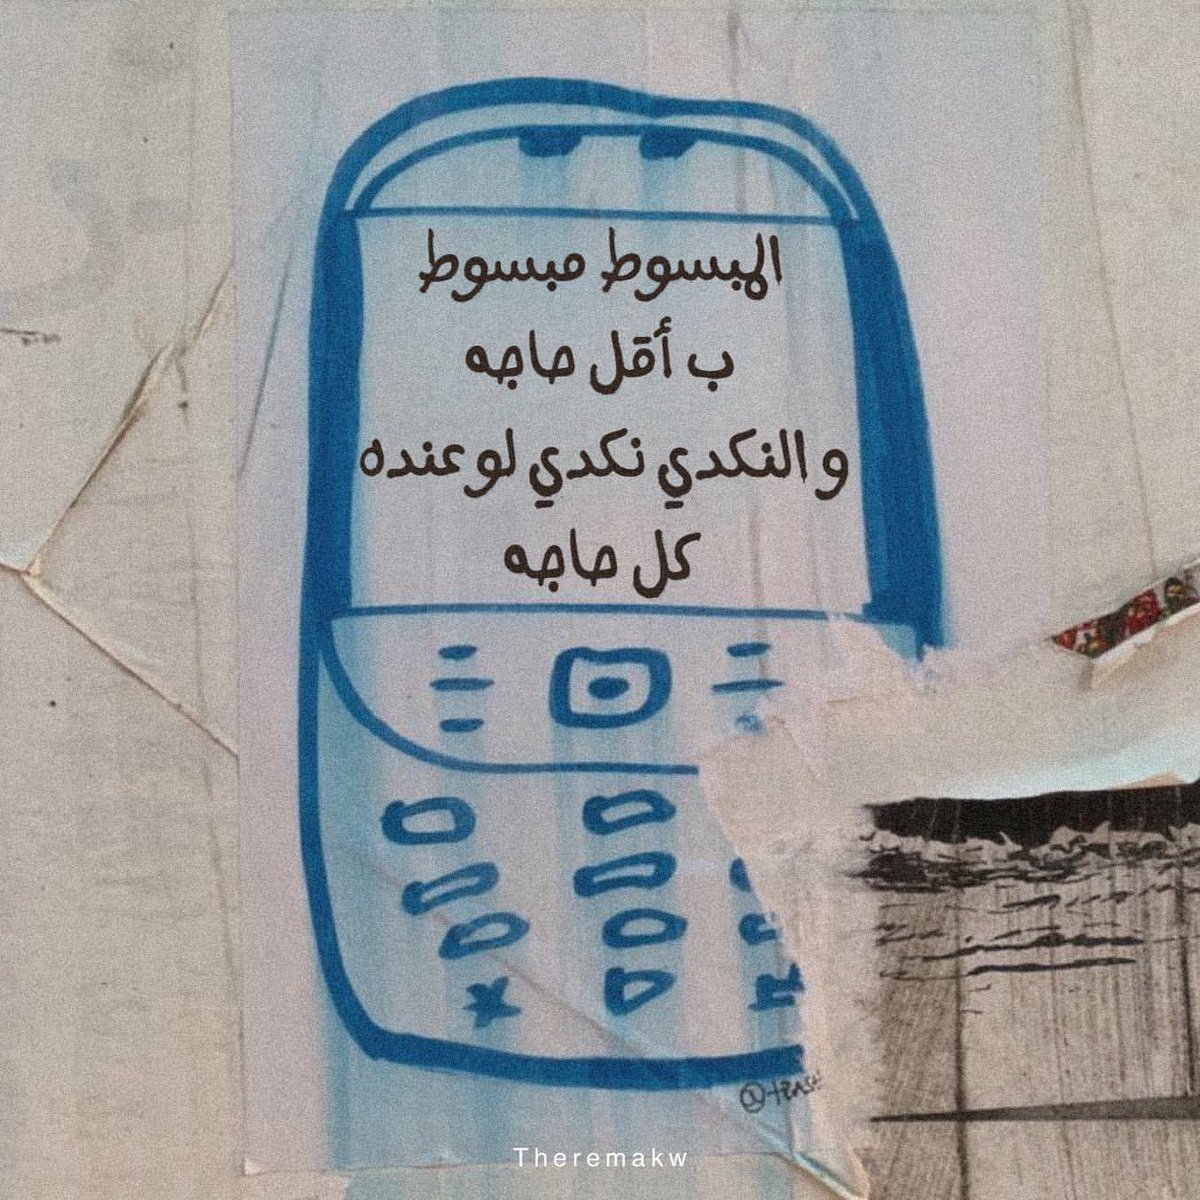 المبسوط مبسوط
ب أقل حاجه
و النكدي نكدي لو عنده
كل حاجه
Theremakw